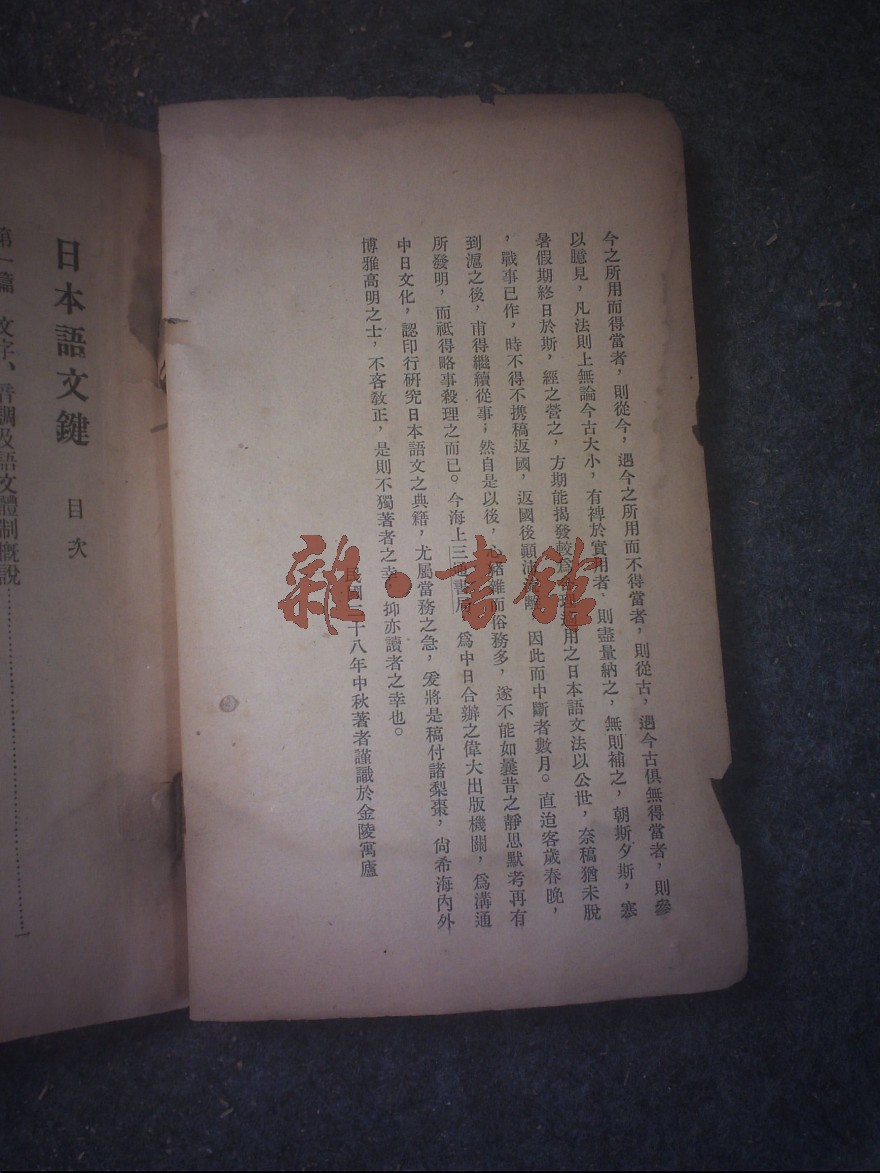 今之所用而得當者，則從今，遇今之所用而不得當者，則從古，遇今古俱無得當者，則參
以臆見，凡法則上無論今古大小，有裨於實用者，則盡量納之，無則補之，朝斯夕斯，寒
暑假期終日於斯，經之營之，方期能揭發較爲合理適用之日本語文法以公世，奈稿猶未脫
，戰事已作，時不得不攜稿返國，返國後顚沛流離，因此而中斷者數月。直迨客歲春晚，
到滬之後，甫得繼續從事；然自是以後，心緒雜而俗務多，遂不能如曩昔之靜思默考再有
所發明，而祗得略事殺理之而已。今海上三通書局，爲中日合辦之偉大出版機關，爲溝通
中日文化，認印行研究日本語文之典籍，尤屬當務之急，爰將是稿付諸梨棗，尙希海內外
博雅高明之士，不吝敎正，是則不獨著者之幸，抑亦讀者之幸也。
民國二十八年中秋著者謹識於金陵寓廬
日本語文鍵 目次
第一篇 文字、音調及語文體制槪說…………一
雜·書館